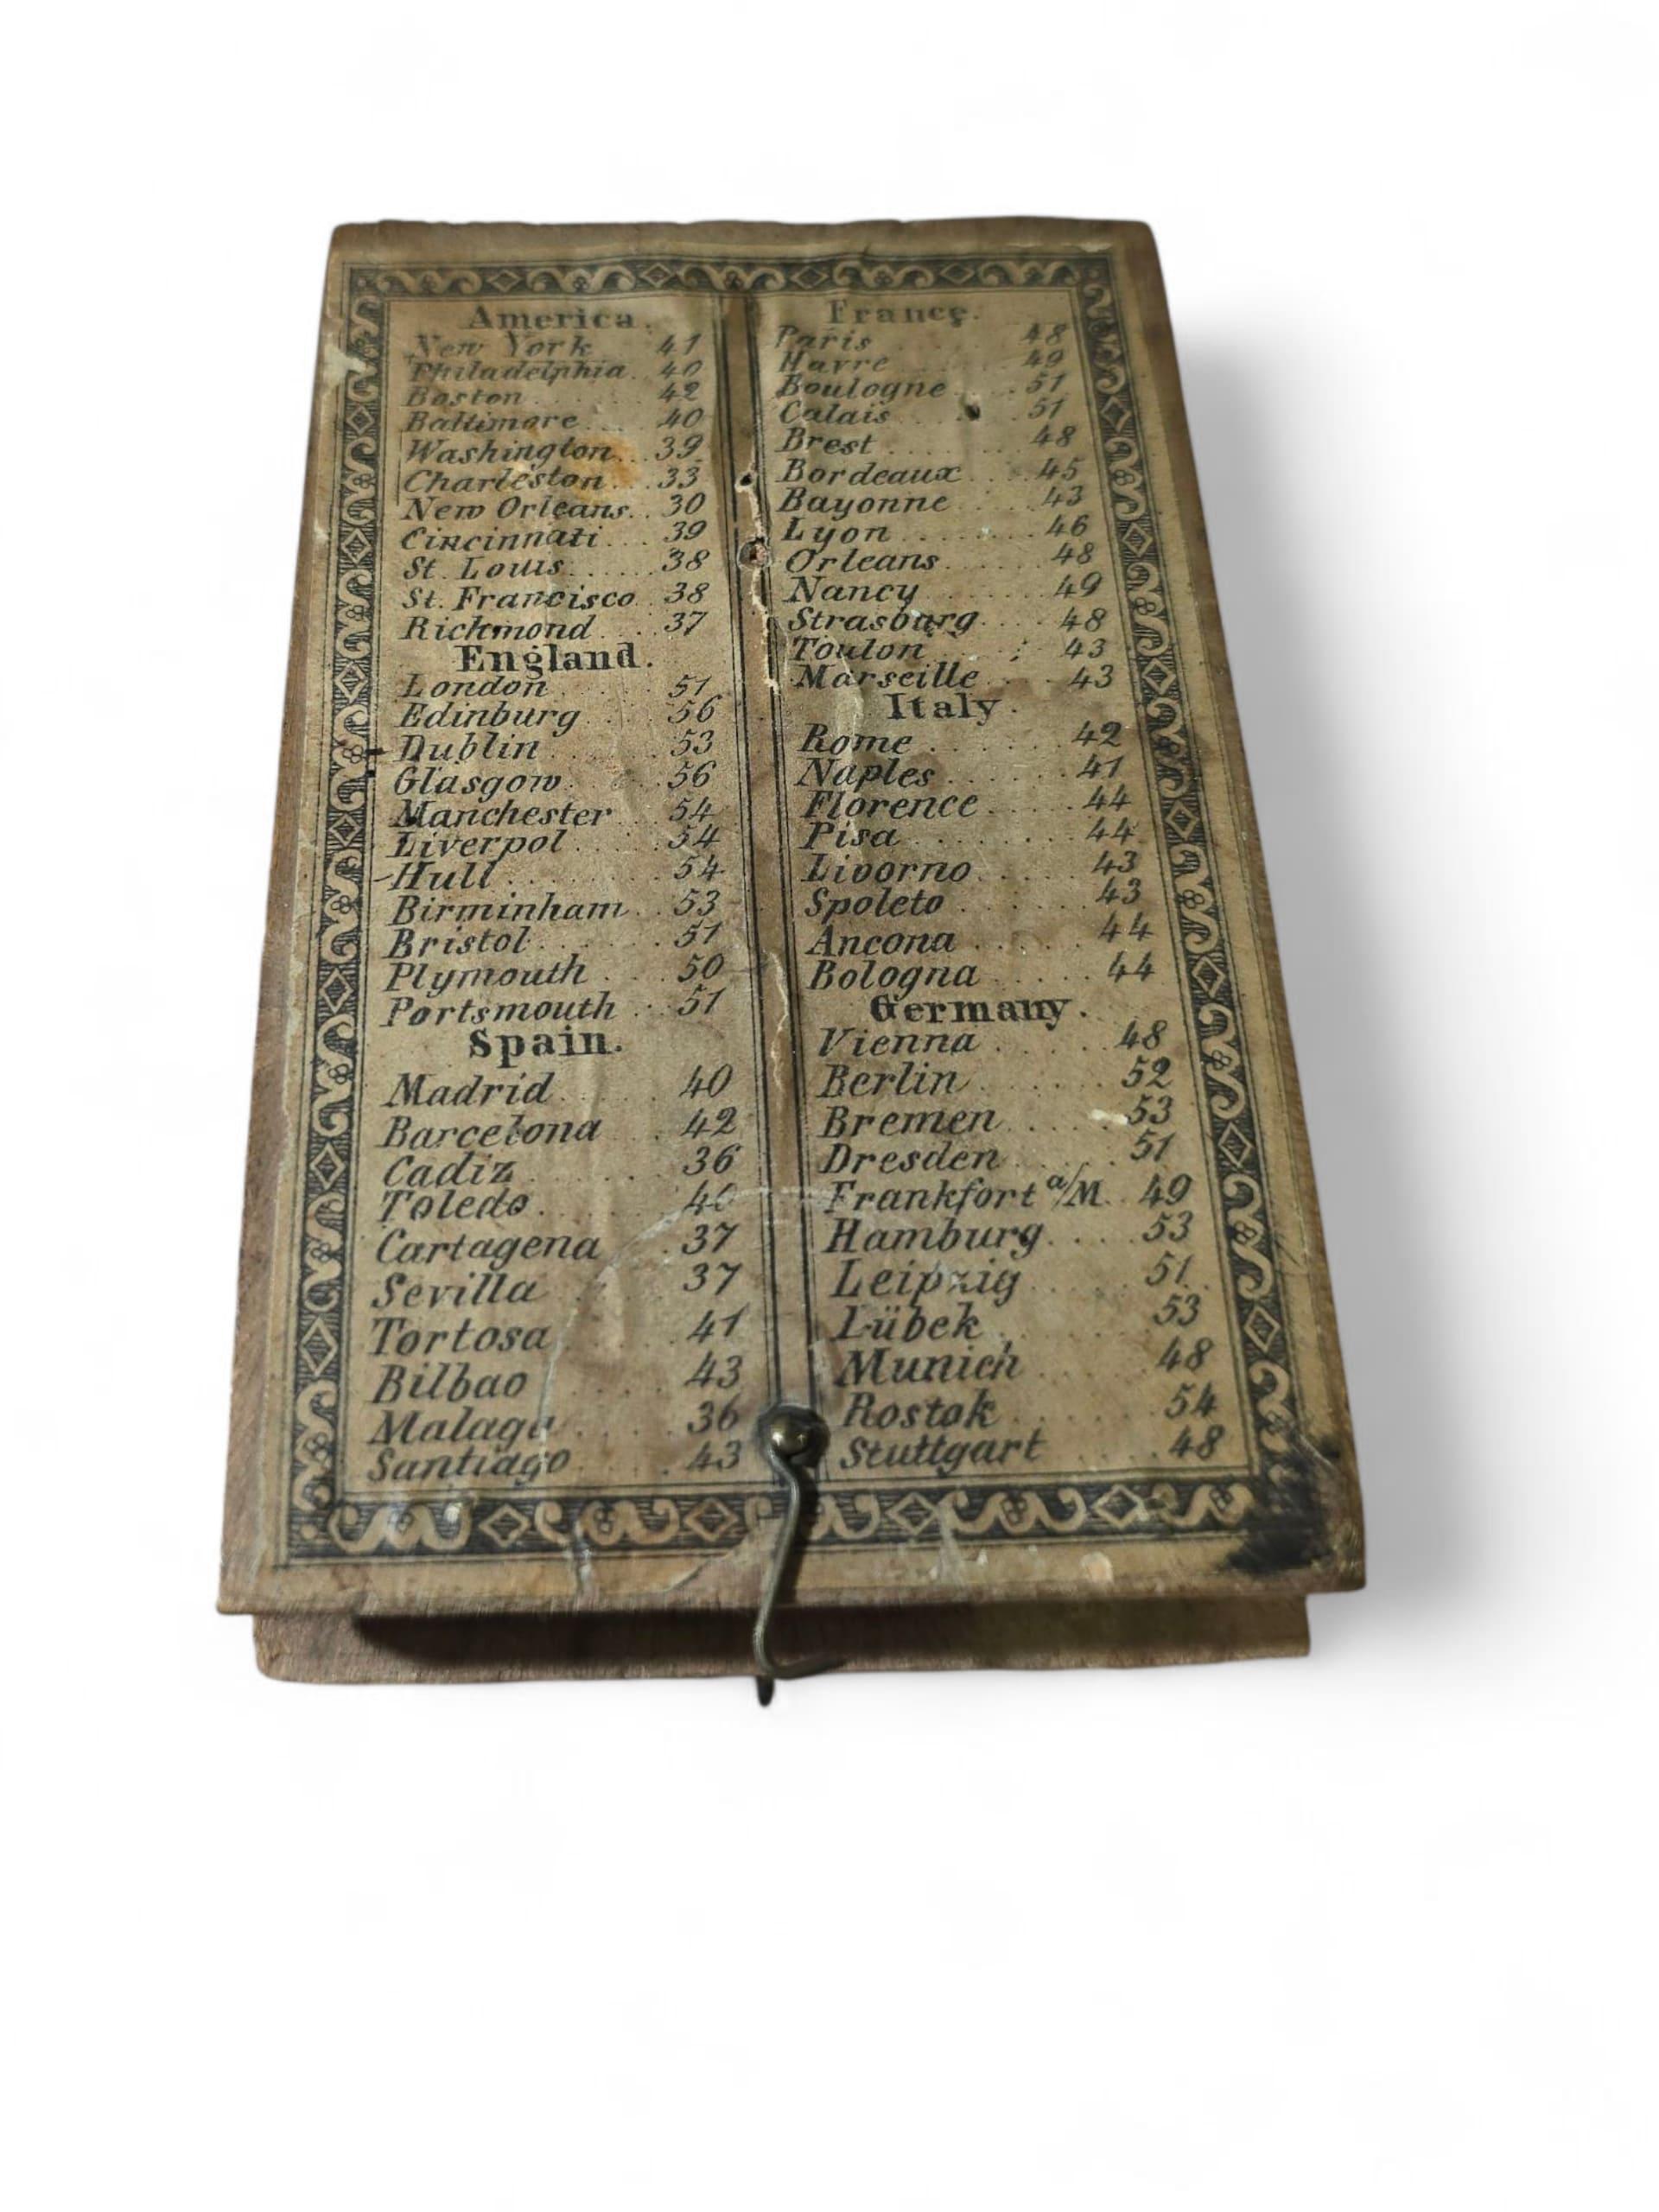 America.
New York 41
Philadelphia. 40
Boston 42
Baltimore 40
Washington 39
Charleston 33
New Orleans 30
Cincinnati 39
St. Louis 38
St. Francisco 38
Richmond 37
England.
London 51
Edinburg 56
Dublin 53
Glasgow 56
Manchester 54
Liverpol 54
Hull 54
Birminham 53
Bristol 51
Plymouth 50
Portsmouth 51
Spain.
Madrid 40
Barcelona 42
Cadiz 36
Toledo
Cartagena 37
Sevilla 37
Tortosa 41
Bilbao 43
Malaga 36
Santiago 43
France.
Paris 48
Havre 49
Boulogne 51
Calais 51
Brest 48
Bordeaux 45
Bayonne 43
Lyon 46
Orleans 48
Nancy 49
Strasburg 48
Toulon 43
Marseille 43
Italy.
Rome 42
Naples 41
Florence 44
Pisa 44
Livorno 43
Spoleto 43
Ancona 44
Bologna 44
Germany.
Vienna 48
Berlin 52
Bremen 53
Dresden 51
Frankfort a/M. 49
Hamburg 53
Leipzig 51
Lübek 53
Munich 48
Rostok 54
Stuttgart 48